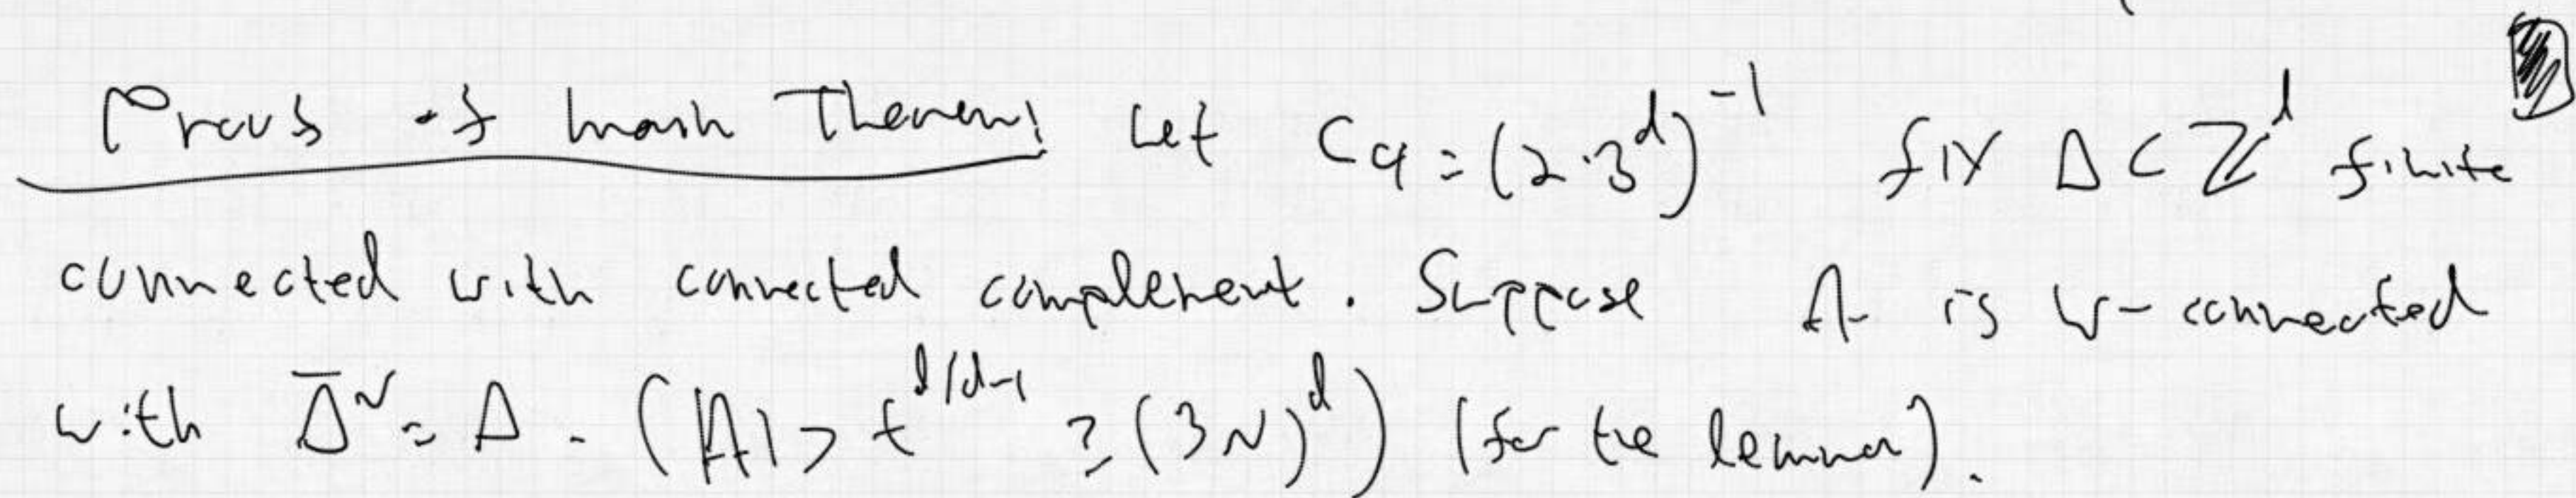 Proof of main Theorem: Let C₄ = (2·3^d)^{-1} fix Δ ⊂ ℤ^d finite
connected with connected complement. Suppose A is w-connected
with \overline{Δ}^N = Δ. (|A| > t^{d/d-1} ≥ (3N)^d) (for the lemma).